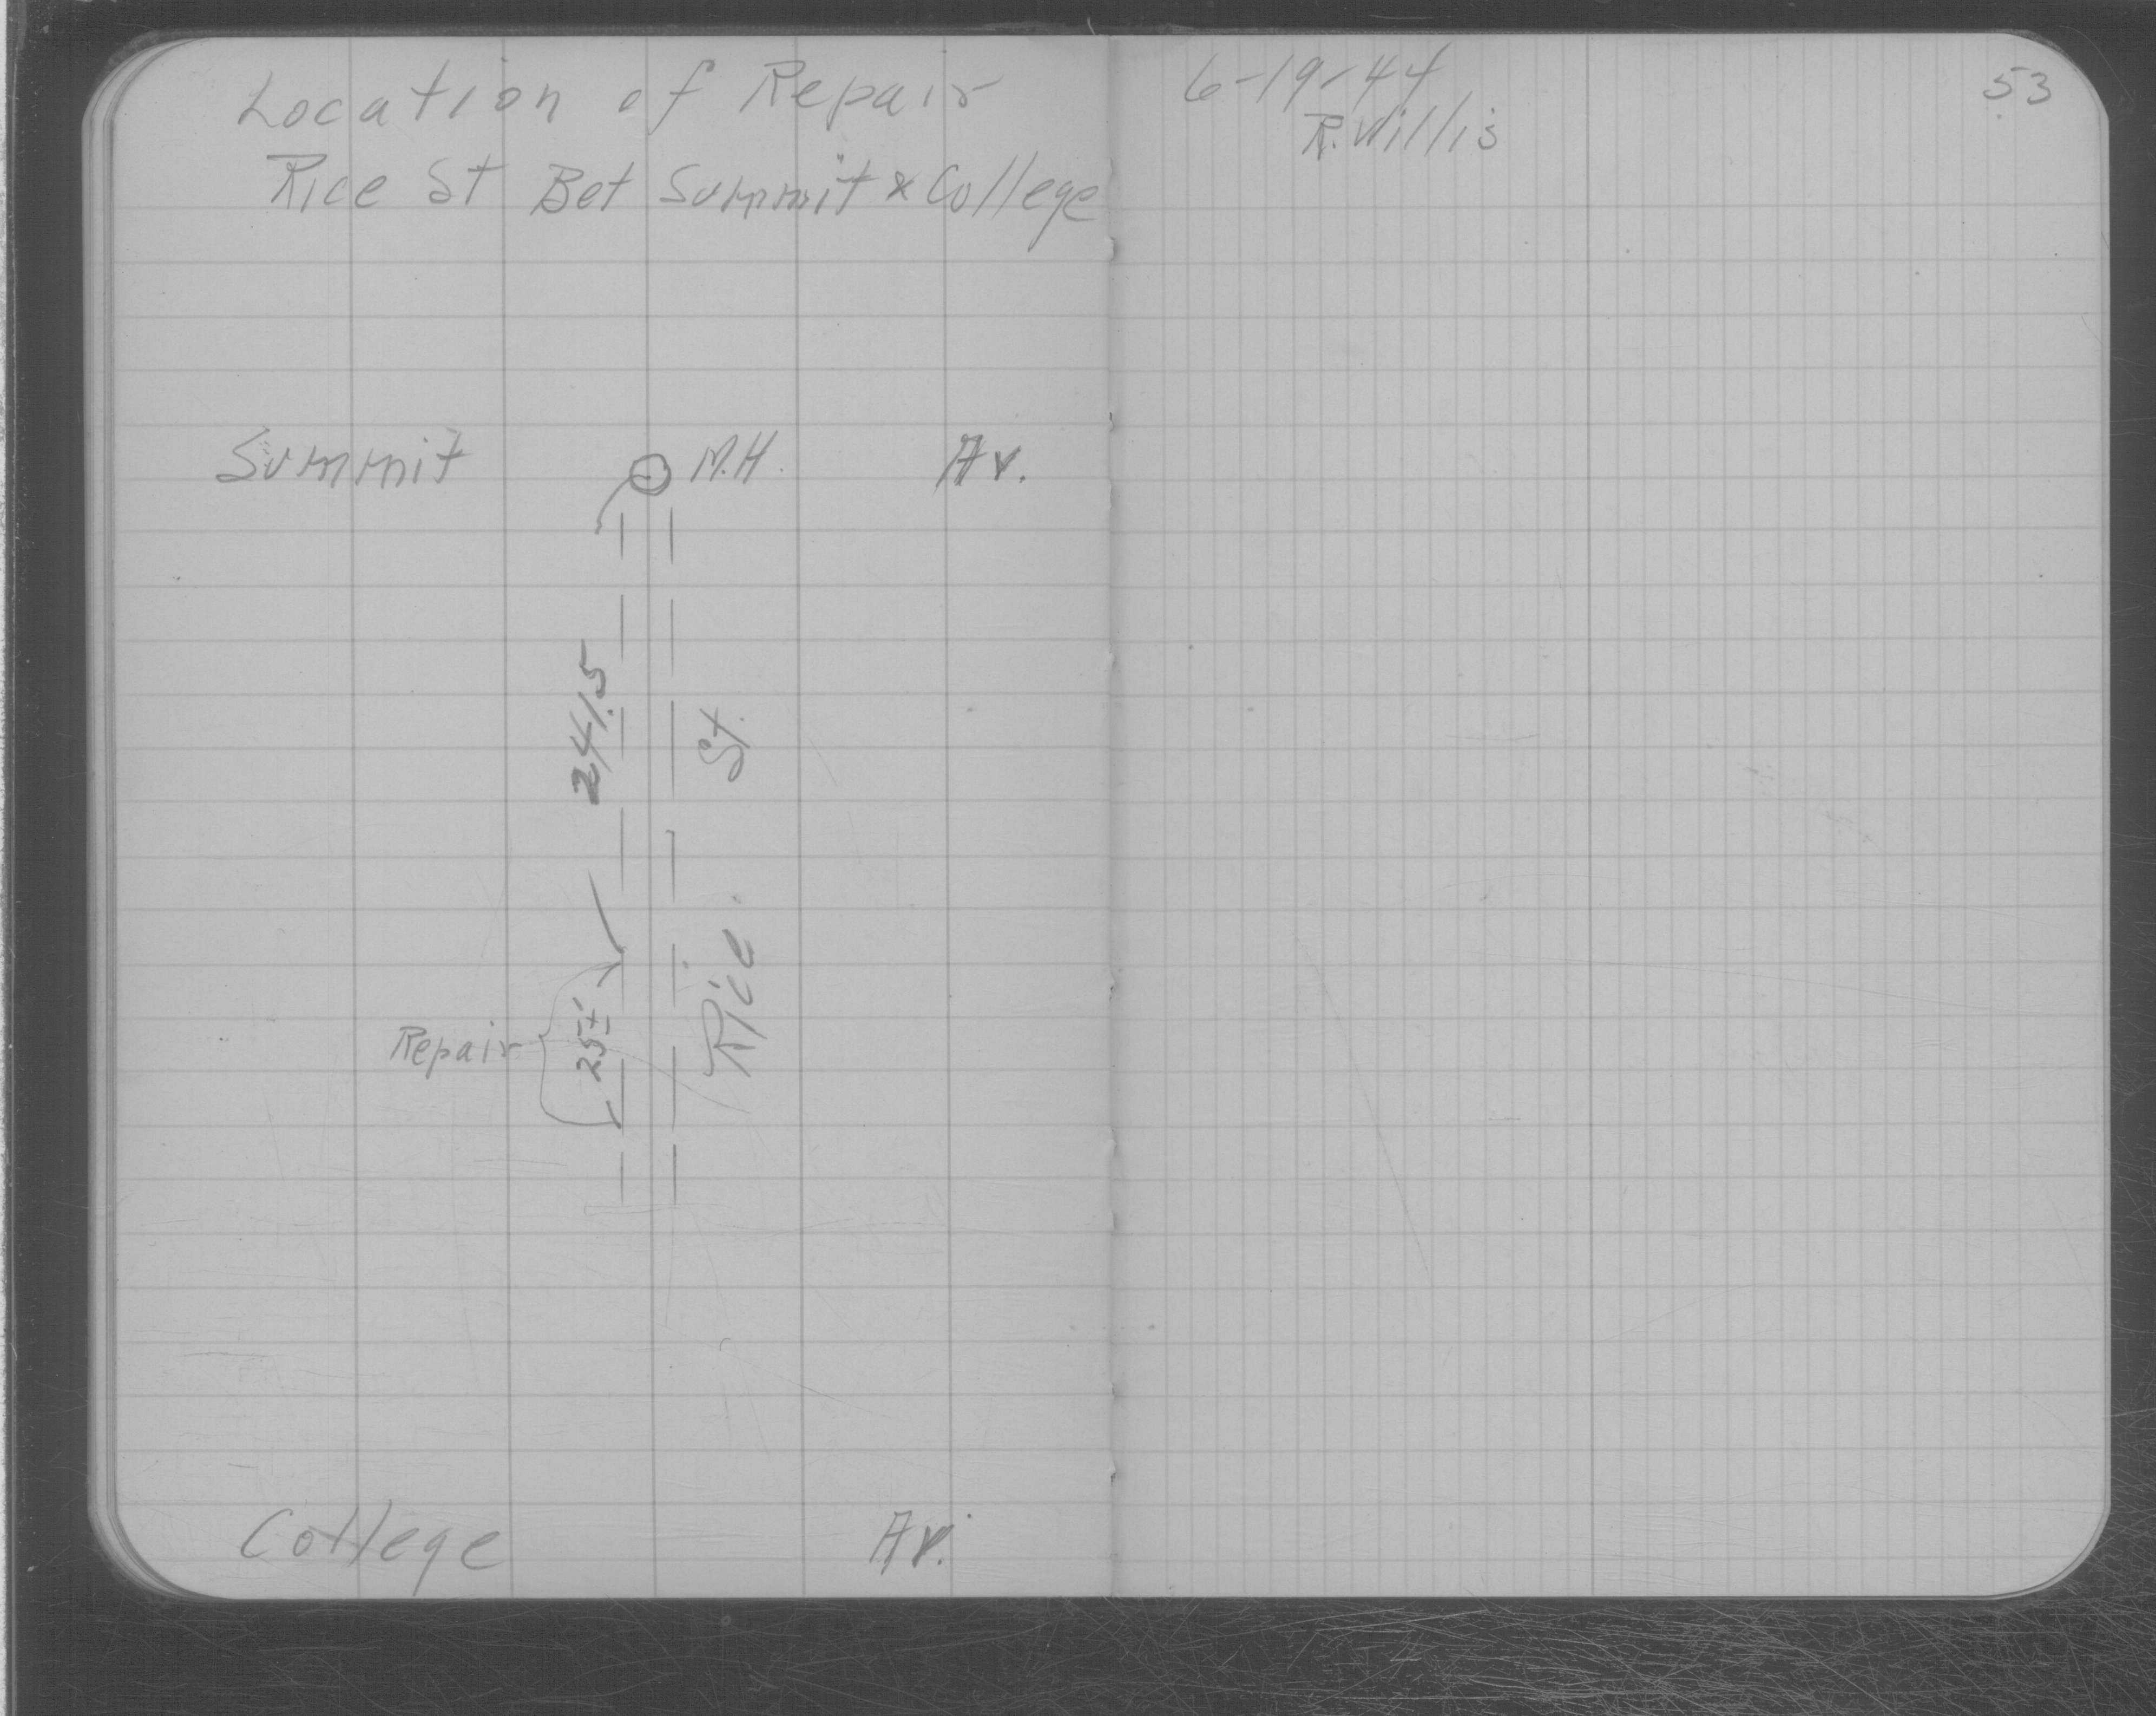 Location of Repair
Rice St Bet Summit & College
6-19-44
R. Willis
53
Summit M.H. Av.
241.5
St.
Rice
Repair 25±'
College Av.